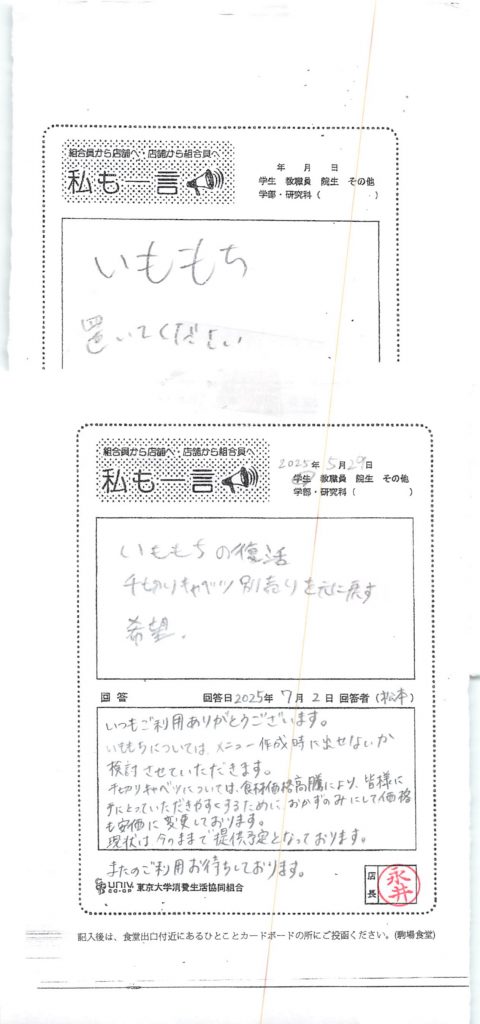 組合員から店舗へ・店舗から組合員へ
私も一言
年 月 日
学生 教職員 院生 その他
学部・研究科( )
いももち
置いてください
組合員から店舗へ・店舗から組合員へ
私も一言
2025年5月29日
学生 教職員 院生 その他
学部・研究科( )
いももちの復活
千切りキャベツ別売りを元に戻す
希望.
回答 回答日2025年7月2日 回答者(松本)
いつもご利用ありがとうございます。
いももちについては、メニュー作成時に出せないか
検討させていただきます。
千切りキャベツについては、食材価格高騰により、皆様に
手にとっていただきやすくするために、おかずのみにして価格
も安価に変更しております。
現状は今のままで提供予定となっております。
またのご利用お待ちしております。
univ. co-op 東京大学消費生活協同組合
店長 永井
記入後は、食堂出口付近にあるひとことカードボードの所にご投函ください。(駒場食堂)